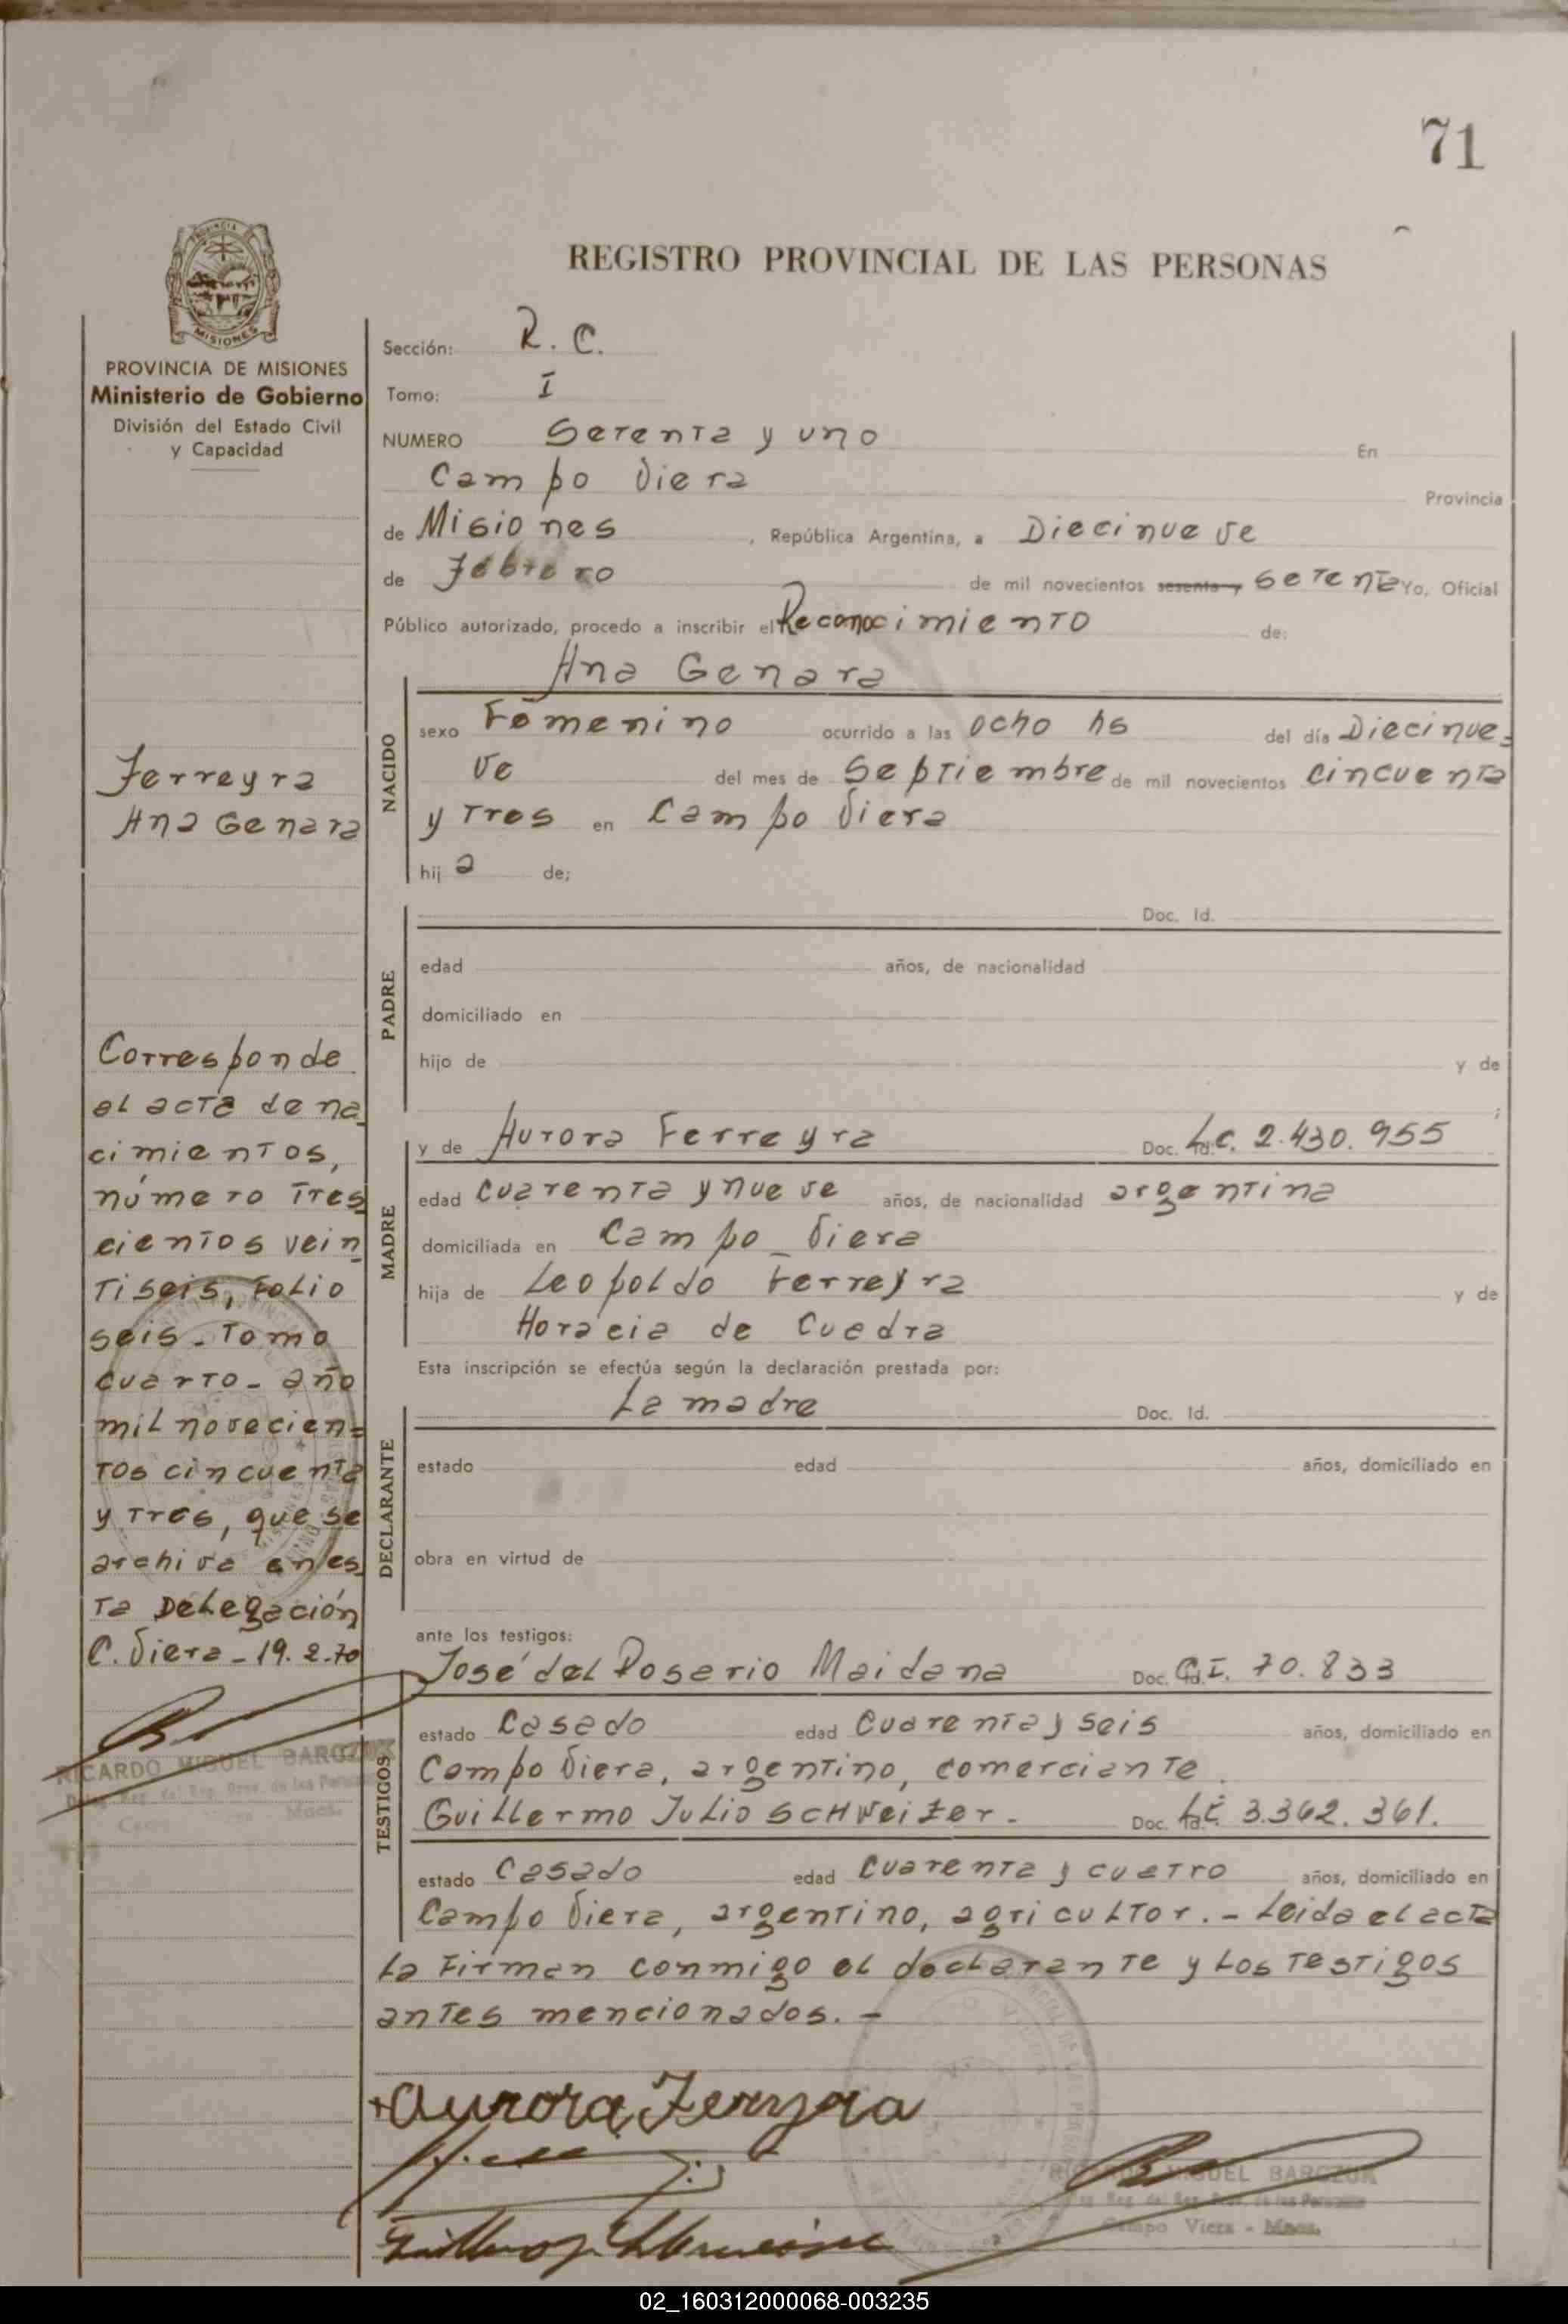 71
REGISTRO PROVINCIAL DE LAS PERSONAS
MISIONES
PROVINCIA DE MISIONES
Ministerio de Gobierno
División del Estado Civil
y Capacidad
Ferreyra
Ana Genara
Corresponde
al acta de na
cimientos,
número tres
cientos vein
tiseis, Folio
seis - Tomo
cuarto - año
mil novecien=
tos cincuenta
y tres, que se
archiva en es
ta Delegación
C. Viera - 19.2.70
RICARDO MIGUEL BARCZUK
Sección: R. C.
Tomo: I
NUMERO Setenta y uno En
Campo Viera Provincia
de Misiones, República Argentina, a Diecinueve
de Febrero de mil novecientos sesenta y Setenta Yo, Oficial
Público autorizado, procedo a inscribir el Reconocimiento de:
Ana Genara
NACIDO
sexo Femenino ocurrido a las ocho hs del día Diecinue=
ve del mes de Septiembre de mil novecientos cincuenta
y tres en Campo Viera
hija de;
PADRE
Doc. Id.
edad años, de nacionalidad
domiciliado en
hijo de y de
;
MADRE
y de Aurora Ferreyra Doc. Id. L.C. 2.430.955
edad cuarenta y nueve años, de nacionalidad argentina
domiciliada en Campo Viera
hija de Leopoldo Ferreyra y de
Horacia de Cuadra
Esta inscripción se efectúa según la declaración prestada por:
DECLARANTE
La madre Doc. Id.
estado edad años, domiciliado en
obra en virtud de
ante los testigos:
TESTIGOS
José del Rosario Maidana Doc. Id. C.I. 70.833
estado Casado edad Cuarenta y seis años, domiciliado en
Campo Viera, argentino, comerciante.
Guillermo Julio Schweizer. Doc. Id. L.E. 3.362.361.
estado Casado edad Cuarenta y cuatro años, domiciliado en
Campo Viera, argentino, agricultor. - Leida el acta
la firman conmigo el declarante y los testigos
antes mencionados. -
Aurora Ferreyra
RICARDO MIGUEL BARCZUK
Campo Viera - Mnes.
02_160312000068-003235